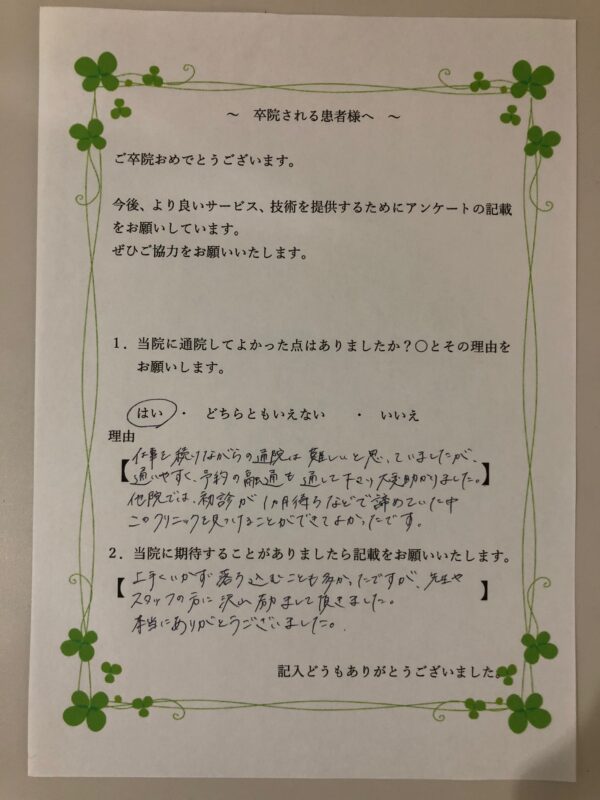 ～　卒院される患者様へ　～
ご卒院おめでとうございます。
今後、より良いサービス、技術を提供するためにアンケートの記載
をお願いしています。
ぜひご協力をお願いいたします。
１．当院に通院してよかった点はありましたか？〇とその理由を
お願いします。
はい　・　どちらともいえない　　・　いいえ
理由
【仕事を続けながらの通院は難しいと思っていましたが、
通いやすく、予約の融通も通して下さり大変助かりました。】
他院では、初診が1ヵ月待ちなどで諦めていた中
このクリニックを見つけることができてよかったです。
２．当院に期待することがありましたら記載をお願いいたします。
【上手くいかず落ち込むことも多かったですが、先生や
スタッフの方に沢山励まして頂きました。】
本当にありがとうございました。
記入どうもありがとうございました。